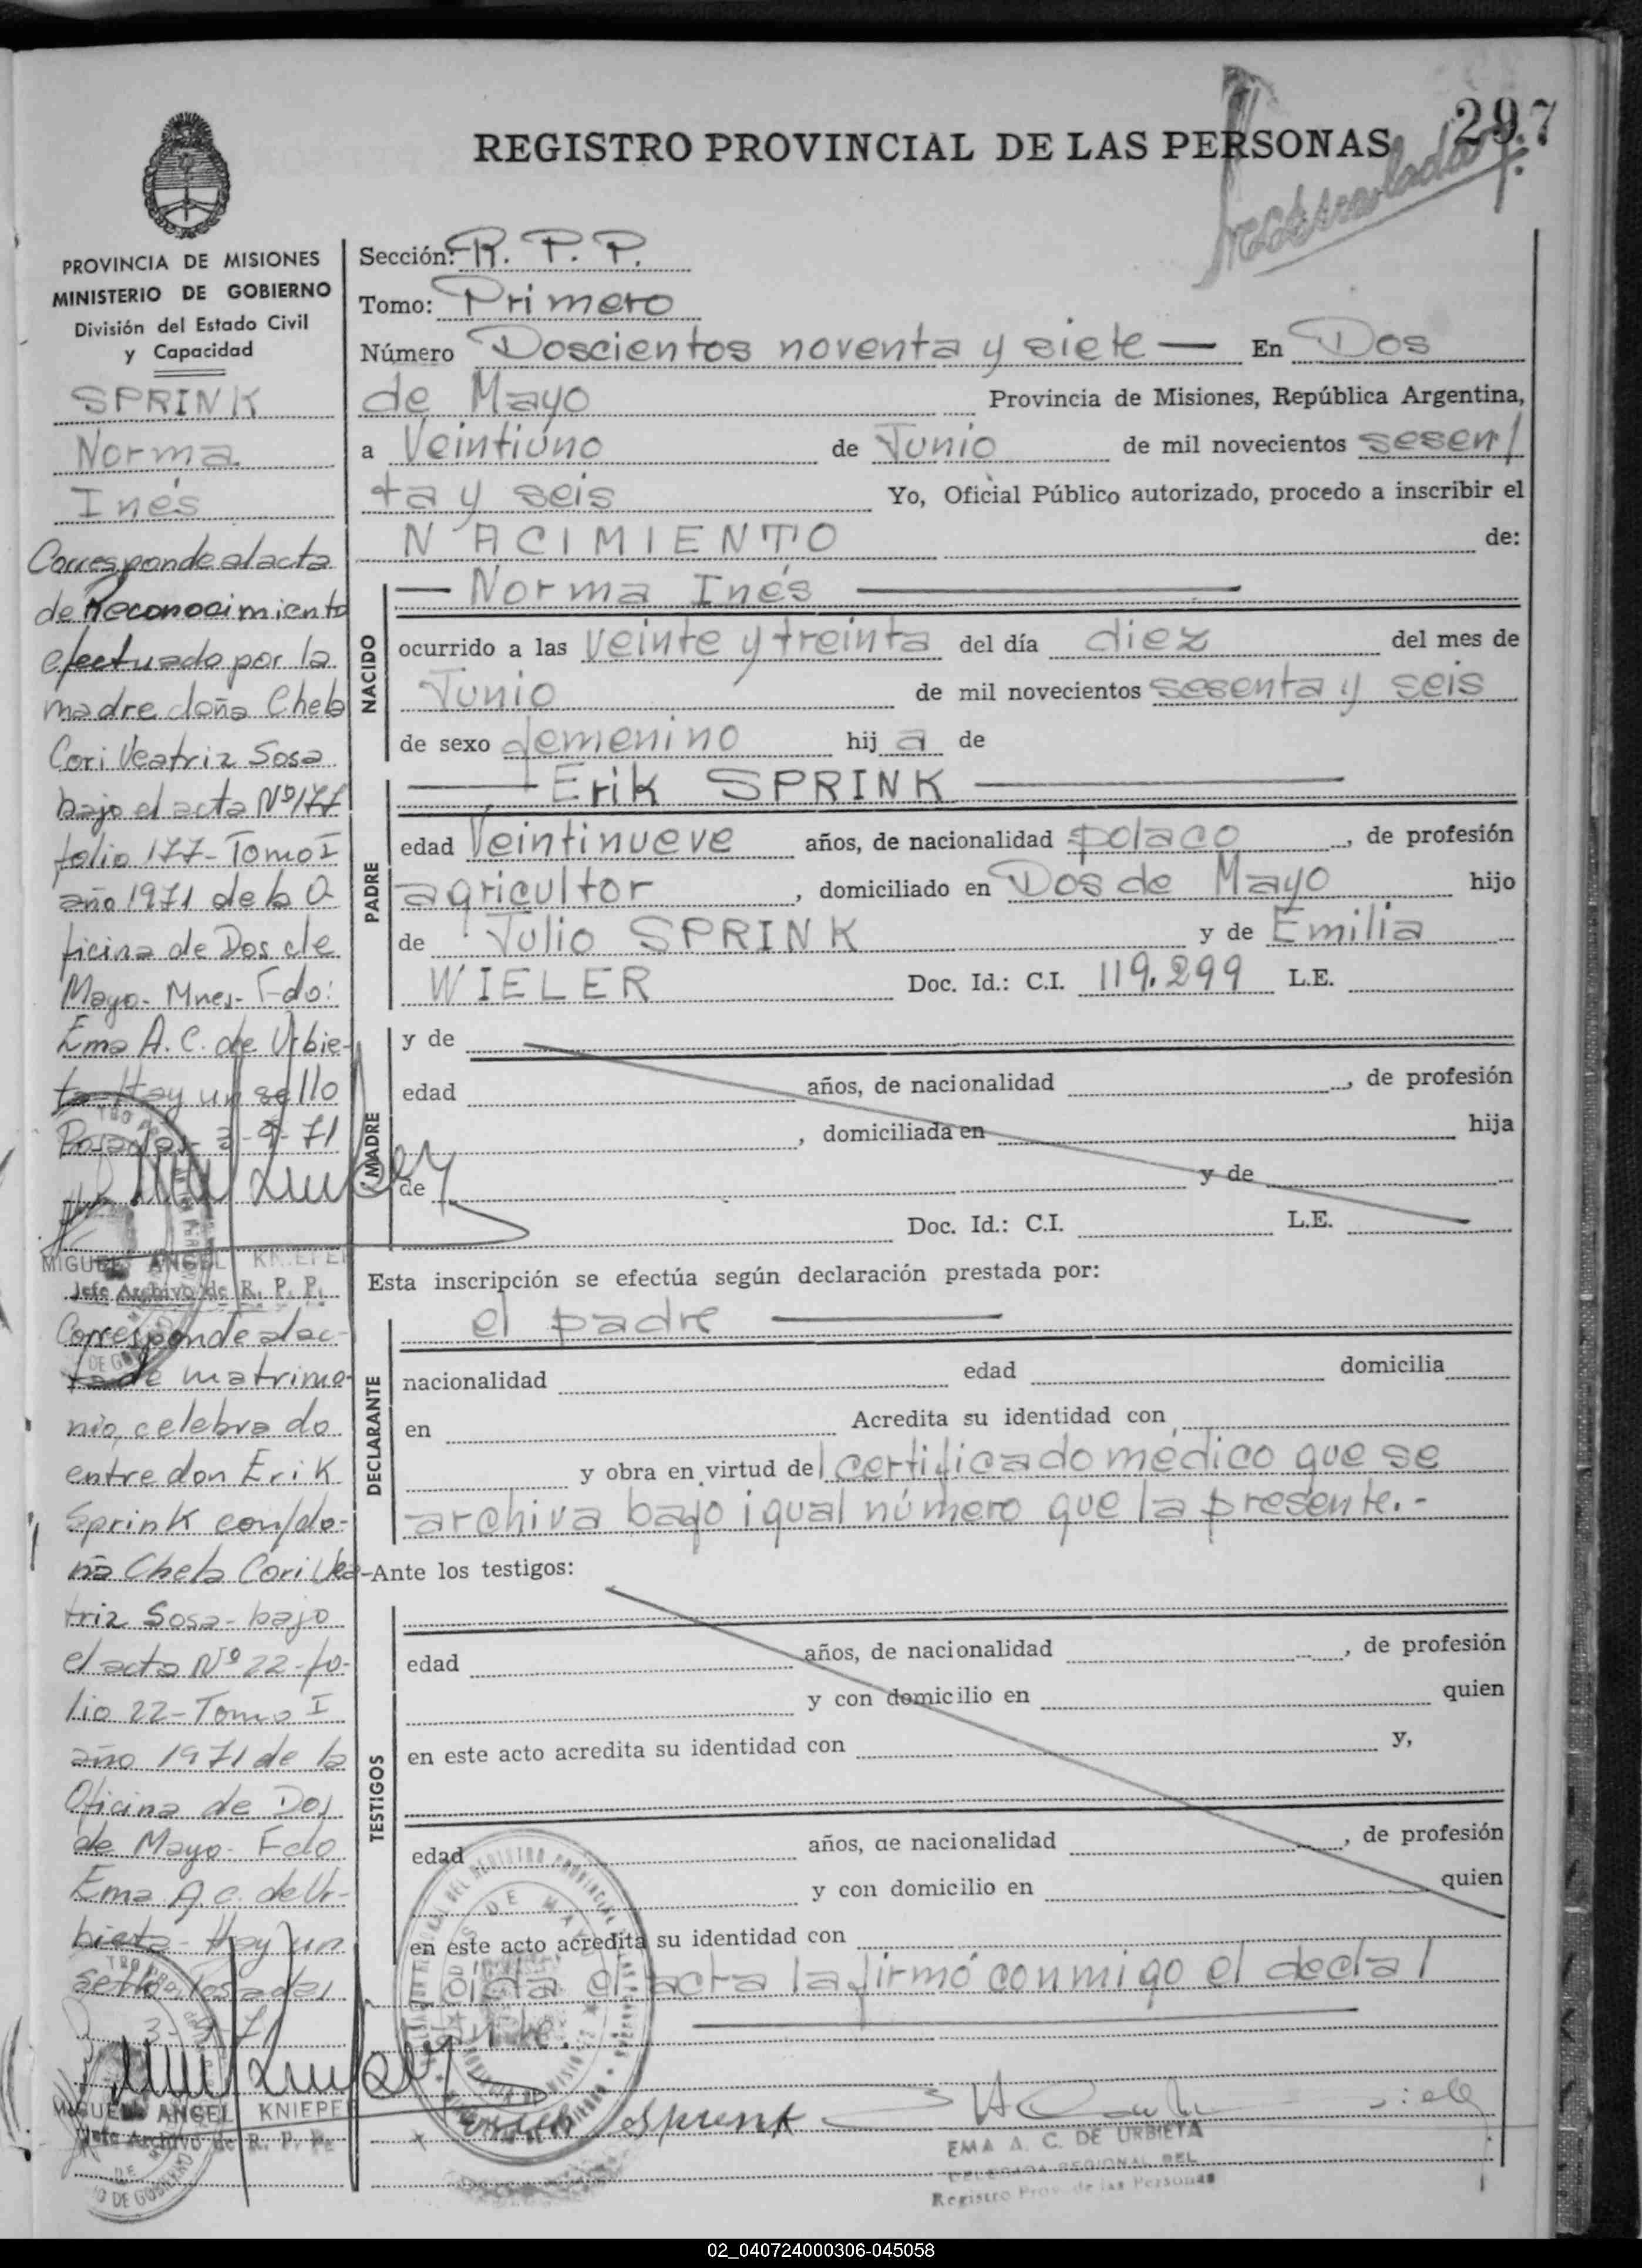 297
REGISTRO PROVINCIAL DE LAS PERSONAS
PROVINCIA DE MISIONES
MINISTERIO DE GOBIERNO
División del Estado Civil
y Capacidad
SPRINK
Norma
Inés
Corresponde al acta
de Reconocimiento
efectuado por la
madre doña Chela
Cori Veatriz Sosa
bajo el acta Nº 177
folio 177- Tomo I
año 1971 de la O
ficina de Dos de
Mayo- Mnes- Fdo:
Ema A. C. de Urbie-
ta- Hay un sello
Posadas- 3-9-71
MIGUEL ANGEL KNIEPER
Jefe Archivo de R. P. P.
Corresponde al ac-
ta de matrimo-
nio, celebrado
entre don Erik
Sprink con/do-
ña Chela Cori Vea-
triz Sosa- bajo
el acta Nº 22- fo-
lio 22- Tomo I
año 1971 de la
Oficina de Dos
de Mayo- Fdo
Ema A.C. de Ur-
bieta- Hay un
sello, Posadas
3-9-71
MIGUEL ANGEL KNIEPER
Jefe Archivo de R. P. P.
Sección: R. P. P.
Tomo: Primero
Número Doscientos noventa y siete — En Dos
de Mayo Provincia de Misiones, República Argentina,
a Veintiúno de Junio de mil novecientos sesen/
ta y seis Yo, Oficial Público autorizado, procedo a inscribir el
NACIMIENTO de:
NACIDO
— Norma Inés —
ocurrido a las veinte y treinta del día diez del mes de
Junio de mil novecientos sesenta y seis
de sexo femenino hija de
PADRE
— Erik SPRINK —
edad Veintinueve años, de nacionalidad polaco, de profesión
agricultor, domiciliado en Dos de Mayo hijo
de Julio SPRINK y de Emilia
WIELER Doc. Id.: C.I. 119.299 L.E.
MADRE
y de
edad años, de nacionalidad , de profesión
, domiciliada en hija
de y de
Doc. Id.: C.I. L.E.
Esta inscripción se efectúa según declaración prestada por:
DECLARANTE
el padre —
nacionalidad edad domicilia
en Acredita su identidad con
y obra en virtud del certificado médico que se
archiva bajo igual número que la presente.-
Ante los testigos:
TESTIGOS
edad años, de nacionalidad , de profesión
y con domicilio en quien
en este acto acredita su identidad con y,
edad años, de nacionalidad , de profesión
y con domicilio en quien
en este acto acredita su identidad con
Leída el acta la firmó conmigo el decla/
Sprink
EMA A. C. DE URBIETA
DELEGADA REGIONAL DEL
Registro Prov. de las Personas
02_040724000306-045058